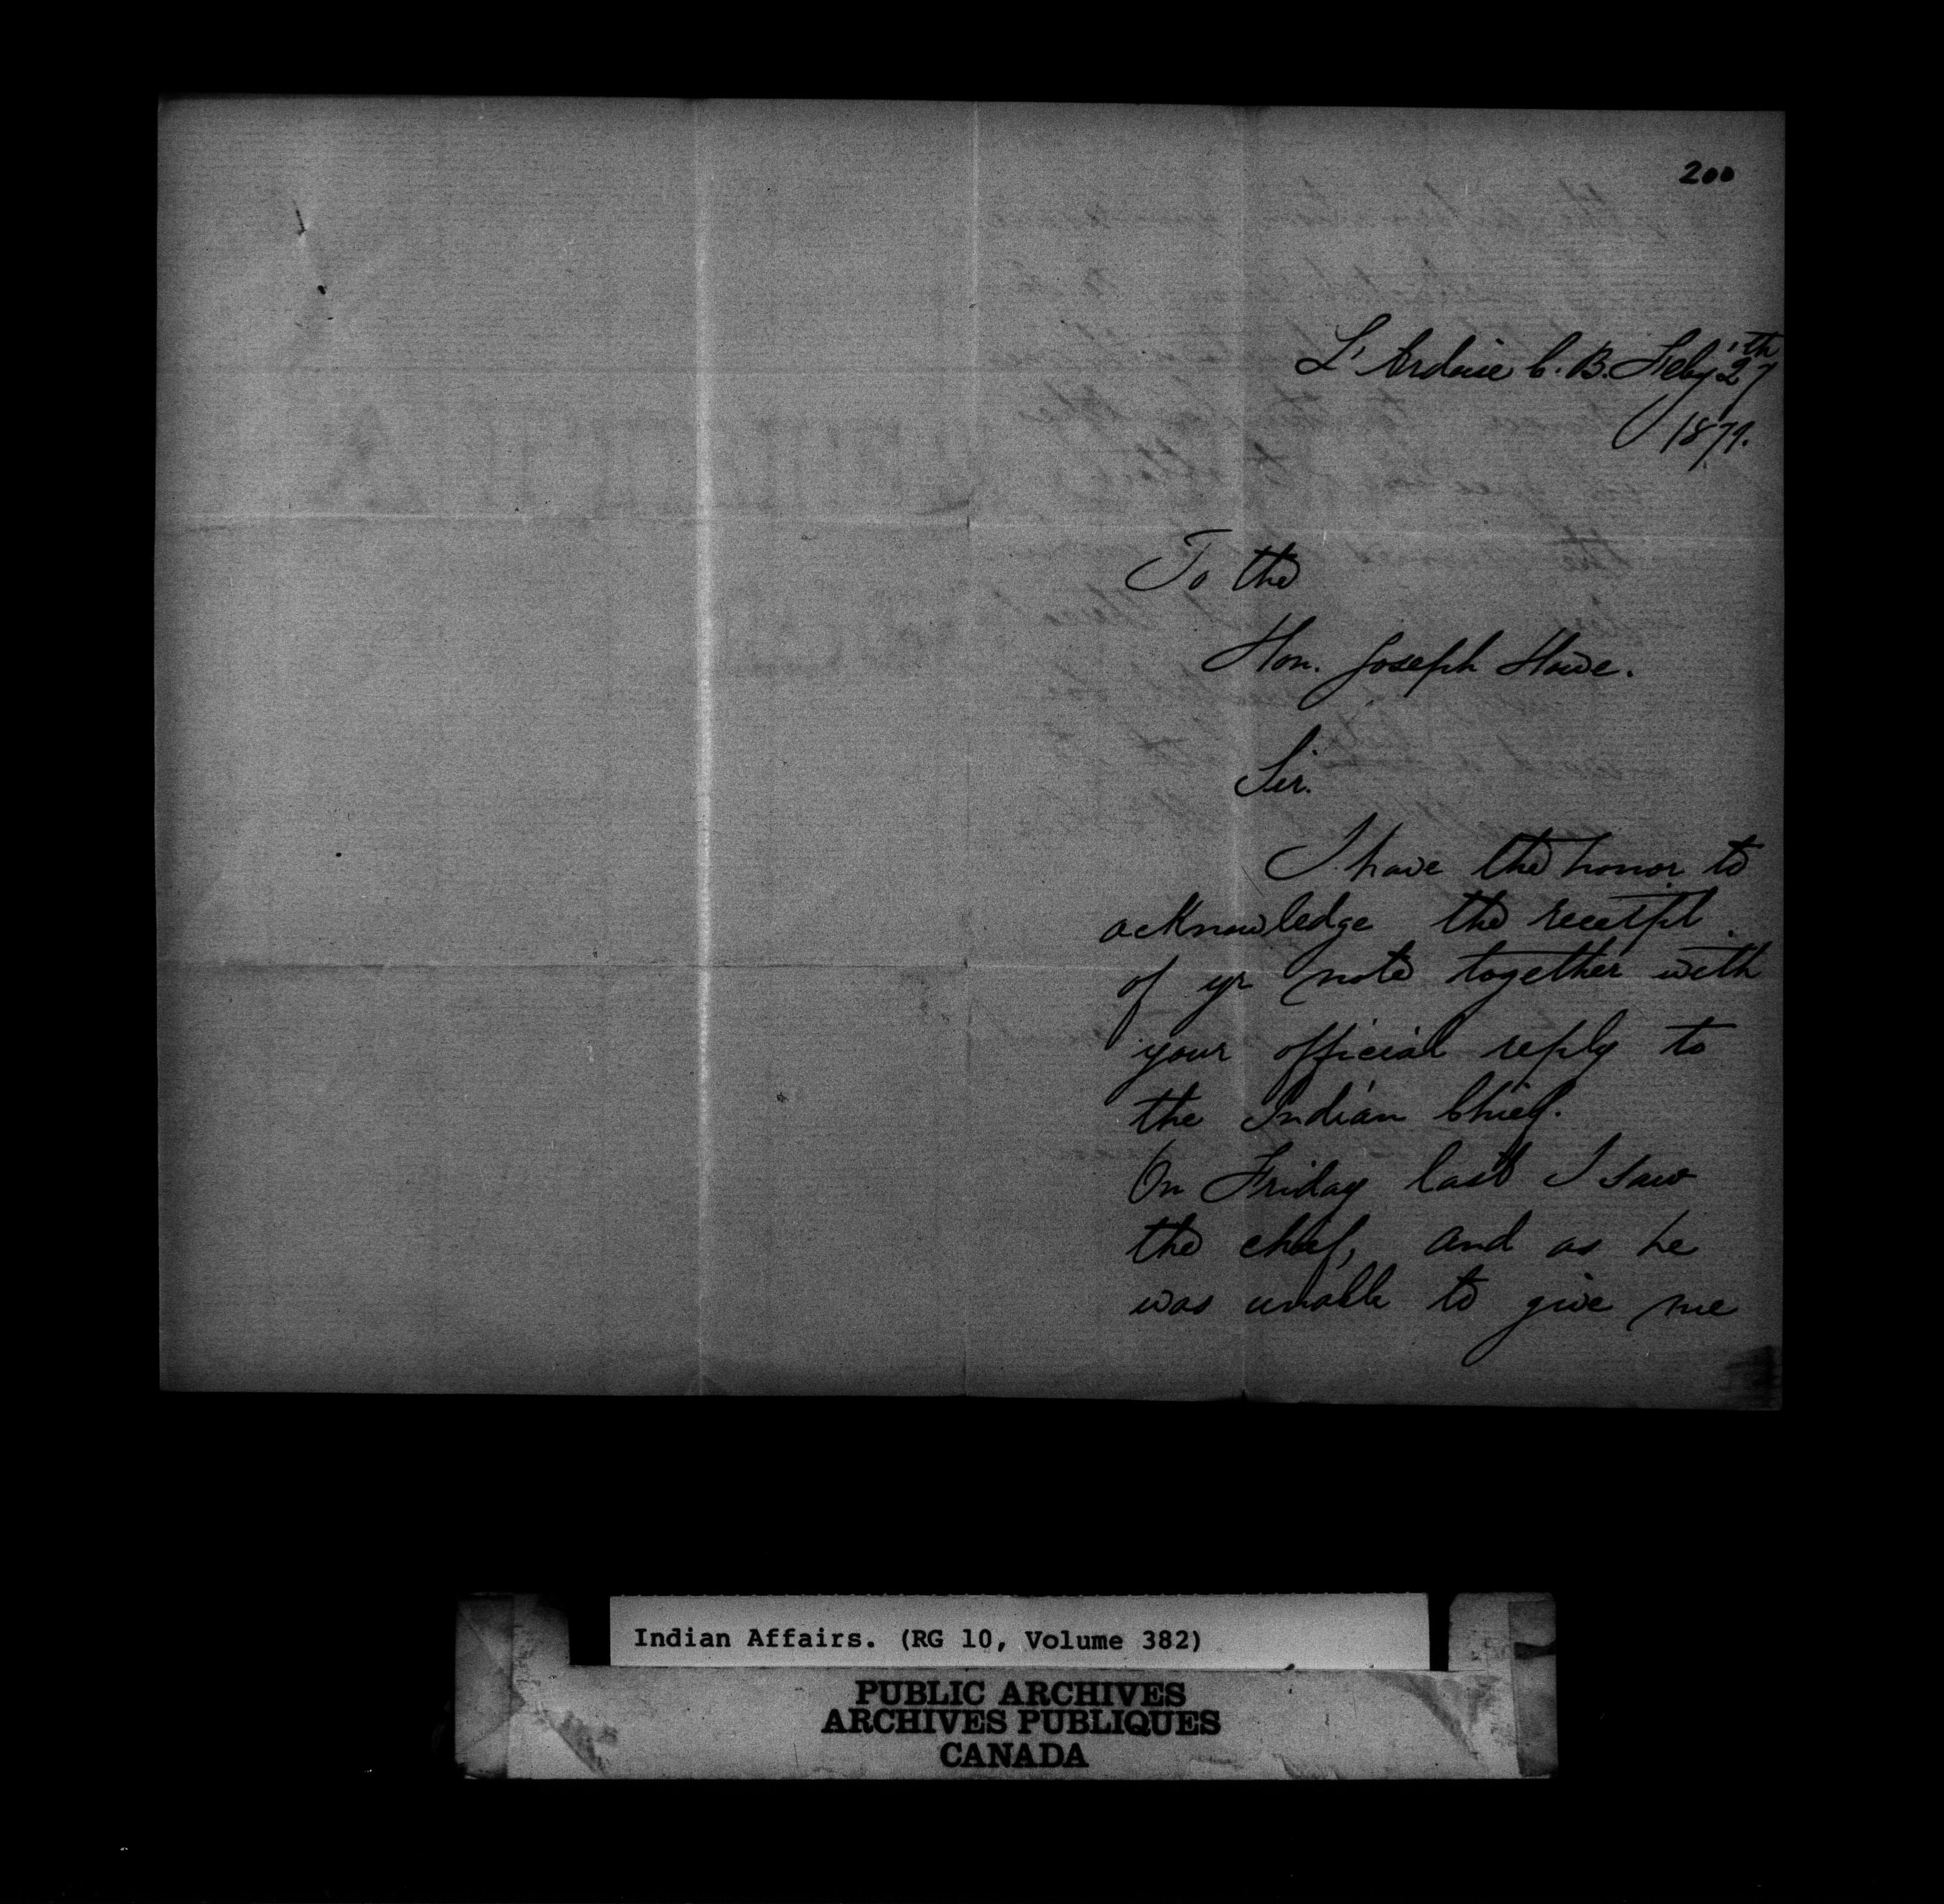 200
L'Ardoise C. B. Feby 27th
1871.
To the
Hon. Joseph Howe.
Sir.
I have the honor to
acknowledge the receipt
of yr note together with
your official reply to
the Indian Chief.
On Friday last I saw
the chief, and as he
was unable to give me
Indian Affairs. (RG 10, Volume 382)
PUBLIC ARCHIVES
ARCHIVES PUBLIQUES
CANADA